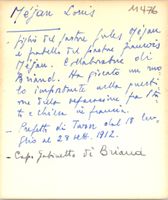 Méjan Louis
11476
- figlio del pastore Jules Méjan
e fratello del pastore François
Méjan. Collaboratore di
Briand. Ha giocato un ruo
lo importante nella questi
one della separazione fra Sta
to e chiesa in Francia.
- Prefetto di
al 28 sett. 1912.
- Capo Gabinetto di Briand